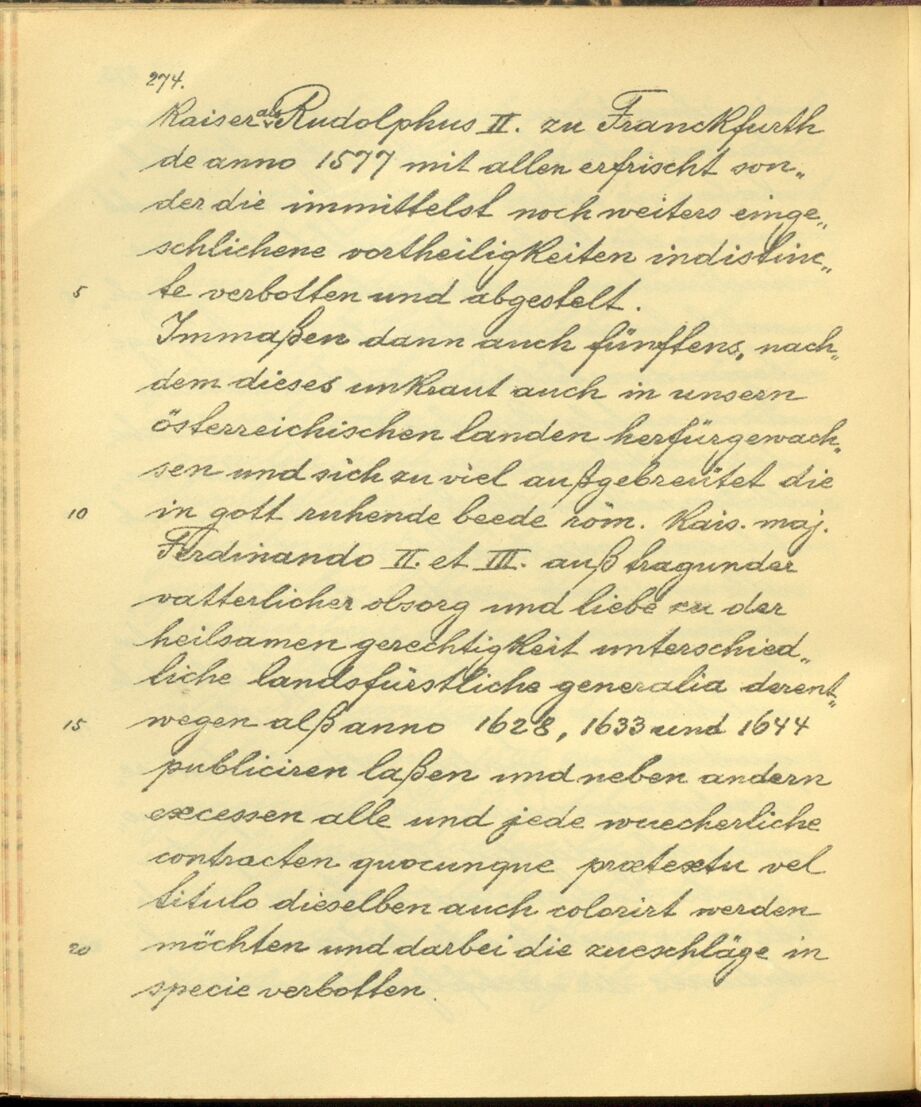 274.
Kaiser als Rudolphus II. zu Franckfurth
de anno 1577 mit allen erfrischt son„
der die immittelst noch weiters einge„
schlichene vortheiligkeiten indistinc„
5 te verbotten und abgestelt.
Immaßen dann auch fünftens, nach„
dem dieses unkraut auch in unsern
österreichischen landen herfürgewach„
sen und sich zu viel außgebreütet die
10 in gott ruhende beede röm. kais. maj.
Ferdinando II. et III. auß tragunder
vatterlicher obsorg und liebe zu der
heilsamen gerechtigkeit unterschied„
liche landsfürstliche generalia derent„
15 wegen alß anno 1628, 1633 und 1644
publiciren laßen und neben andern
excessen alle und jede wuecherliche
contracten quocunque prætextu vel
titulo dieselben auch colorirt werden
20 möchten und darbei die zueschläge in
specie verbotten.